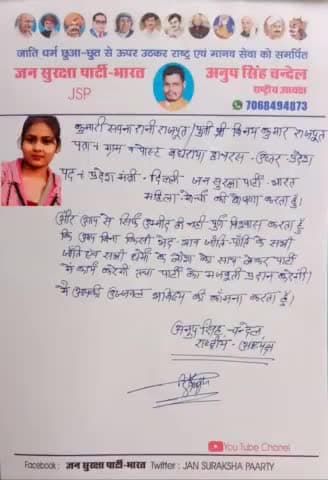 जाति धर्म छुआ-छूत से ऊपर उठकर राष्ट्र एवं मानव सेवा को समर्पित
जन सुरक्षा पार्टी-भारत
JSP
अनुप सिंह चन्देल
राष्ट्रीय अध्यक्ष
7068494873
कुमारी सपना रानी राजपूत / पुत्री श्री विनय कुमार राजपूत
पता + ग्राम व पोस्ट हाथरस - उत्तर प्रदेश
पद + प्रदेश मंत्री - दिल्ली - जन सुरक्षा पार्टी - भारत
महिला मोर्चा की घोषणा करता हूँ।
और आप से सिर्फ उम्मीद ही नहीं पूर्ण विश्वास करता हूँ
कि आप बिना किसी भेद भाव जाति-पाति के सभी
जाति एवं सभी धर्मों के लोगों को साथ लेकर पार्टी
में कार्य करेंगी तथा पार्टी को मजबूती प्रदान करेंगी।
मैं आपके उज्जवल भविष्य की कामना करता हूँ।
अनुप सिंह चन्देल
राष्ट्रीय - अध्यक्ष
You Tube Chanel
Facebook : जन सुरक्षा पार्टी-भारत Twitter : JAN SURAKSHA PAARTY